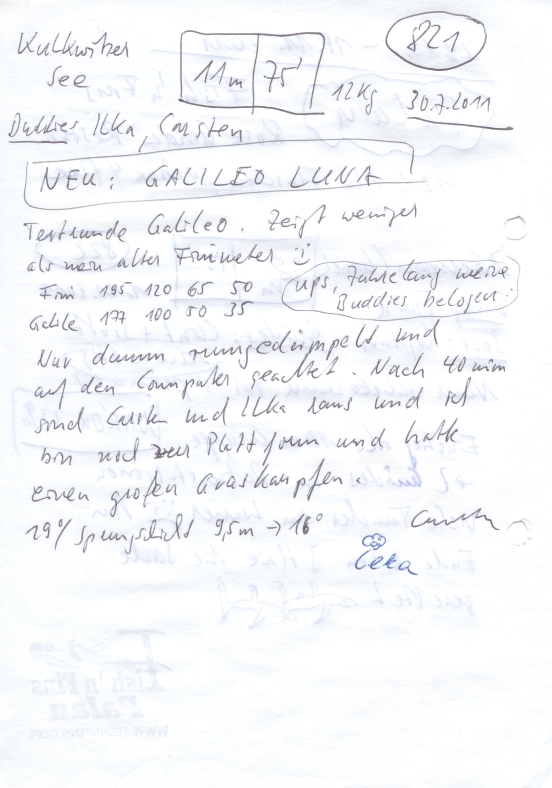 821
Kulkwitzer
See
11m 75'
12kg 30.7.2011
Buddies Ilka, Carsten
NEU: GALILEO LUNA
Testrunde Galileo. Zeigt weniger
als mein alter Finimeter :)
ups, Jahrelang meine
Buddies belogen :
Fini 195 120 65 50
Galileo 177 100 50 35
Nur dumm rumgedümpelt und
auf den Computer geachtet. Nach 40 min
sind Carsten und Ilka raus und ich
bin noch zur Plattform und hatte
einen großen Graskarpfen.
19° Sprungschicht 9,5m → 16°
Carsten
Ilka
Fish 'n Fins
Palau
WWW.FISHNFINS.COM